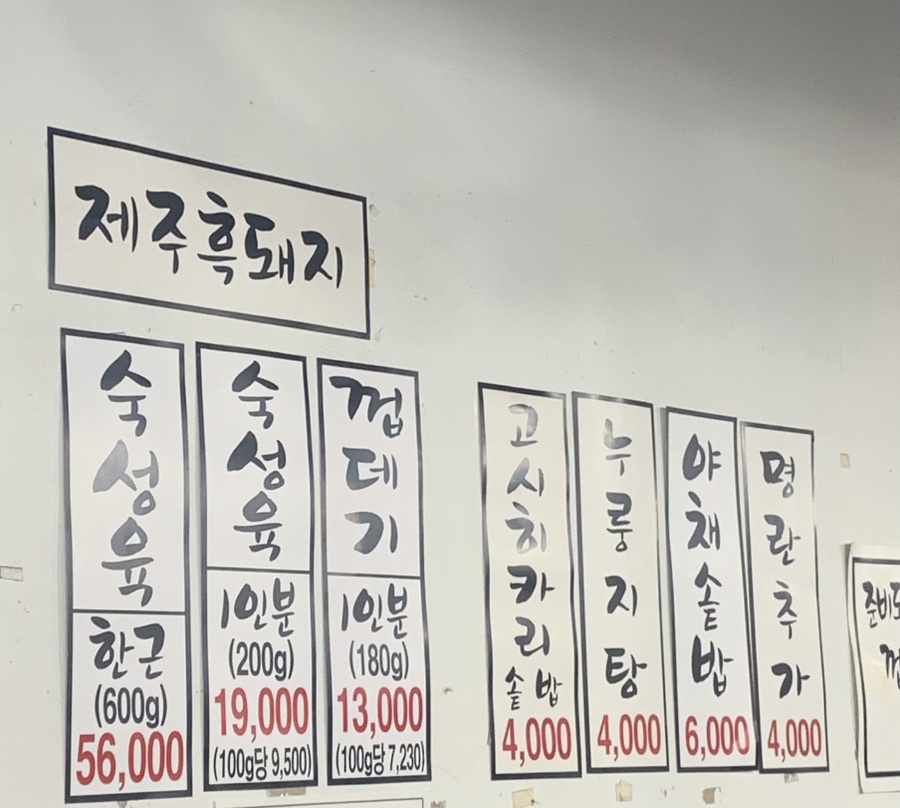 제주흑돼지
숙성육
한근
(600g)
56,000
숙성육
1인분
(200g)
19,000
(100g당 9,500)
껍데기
1인분
(180g)
13,000
(100g당 7,230)
고시히카리
솥밥
4,000
누룽지탕
4,000
야채솥밥
6,000
명란추가
4,000